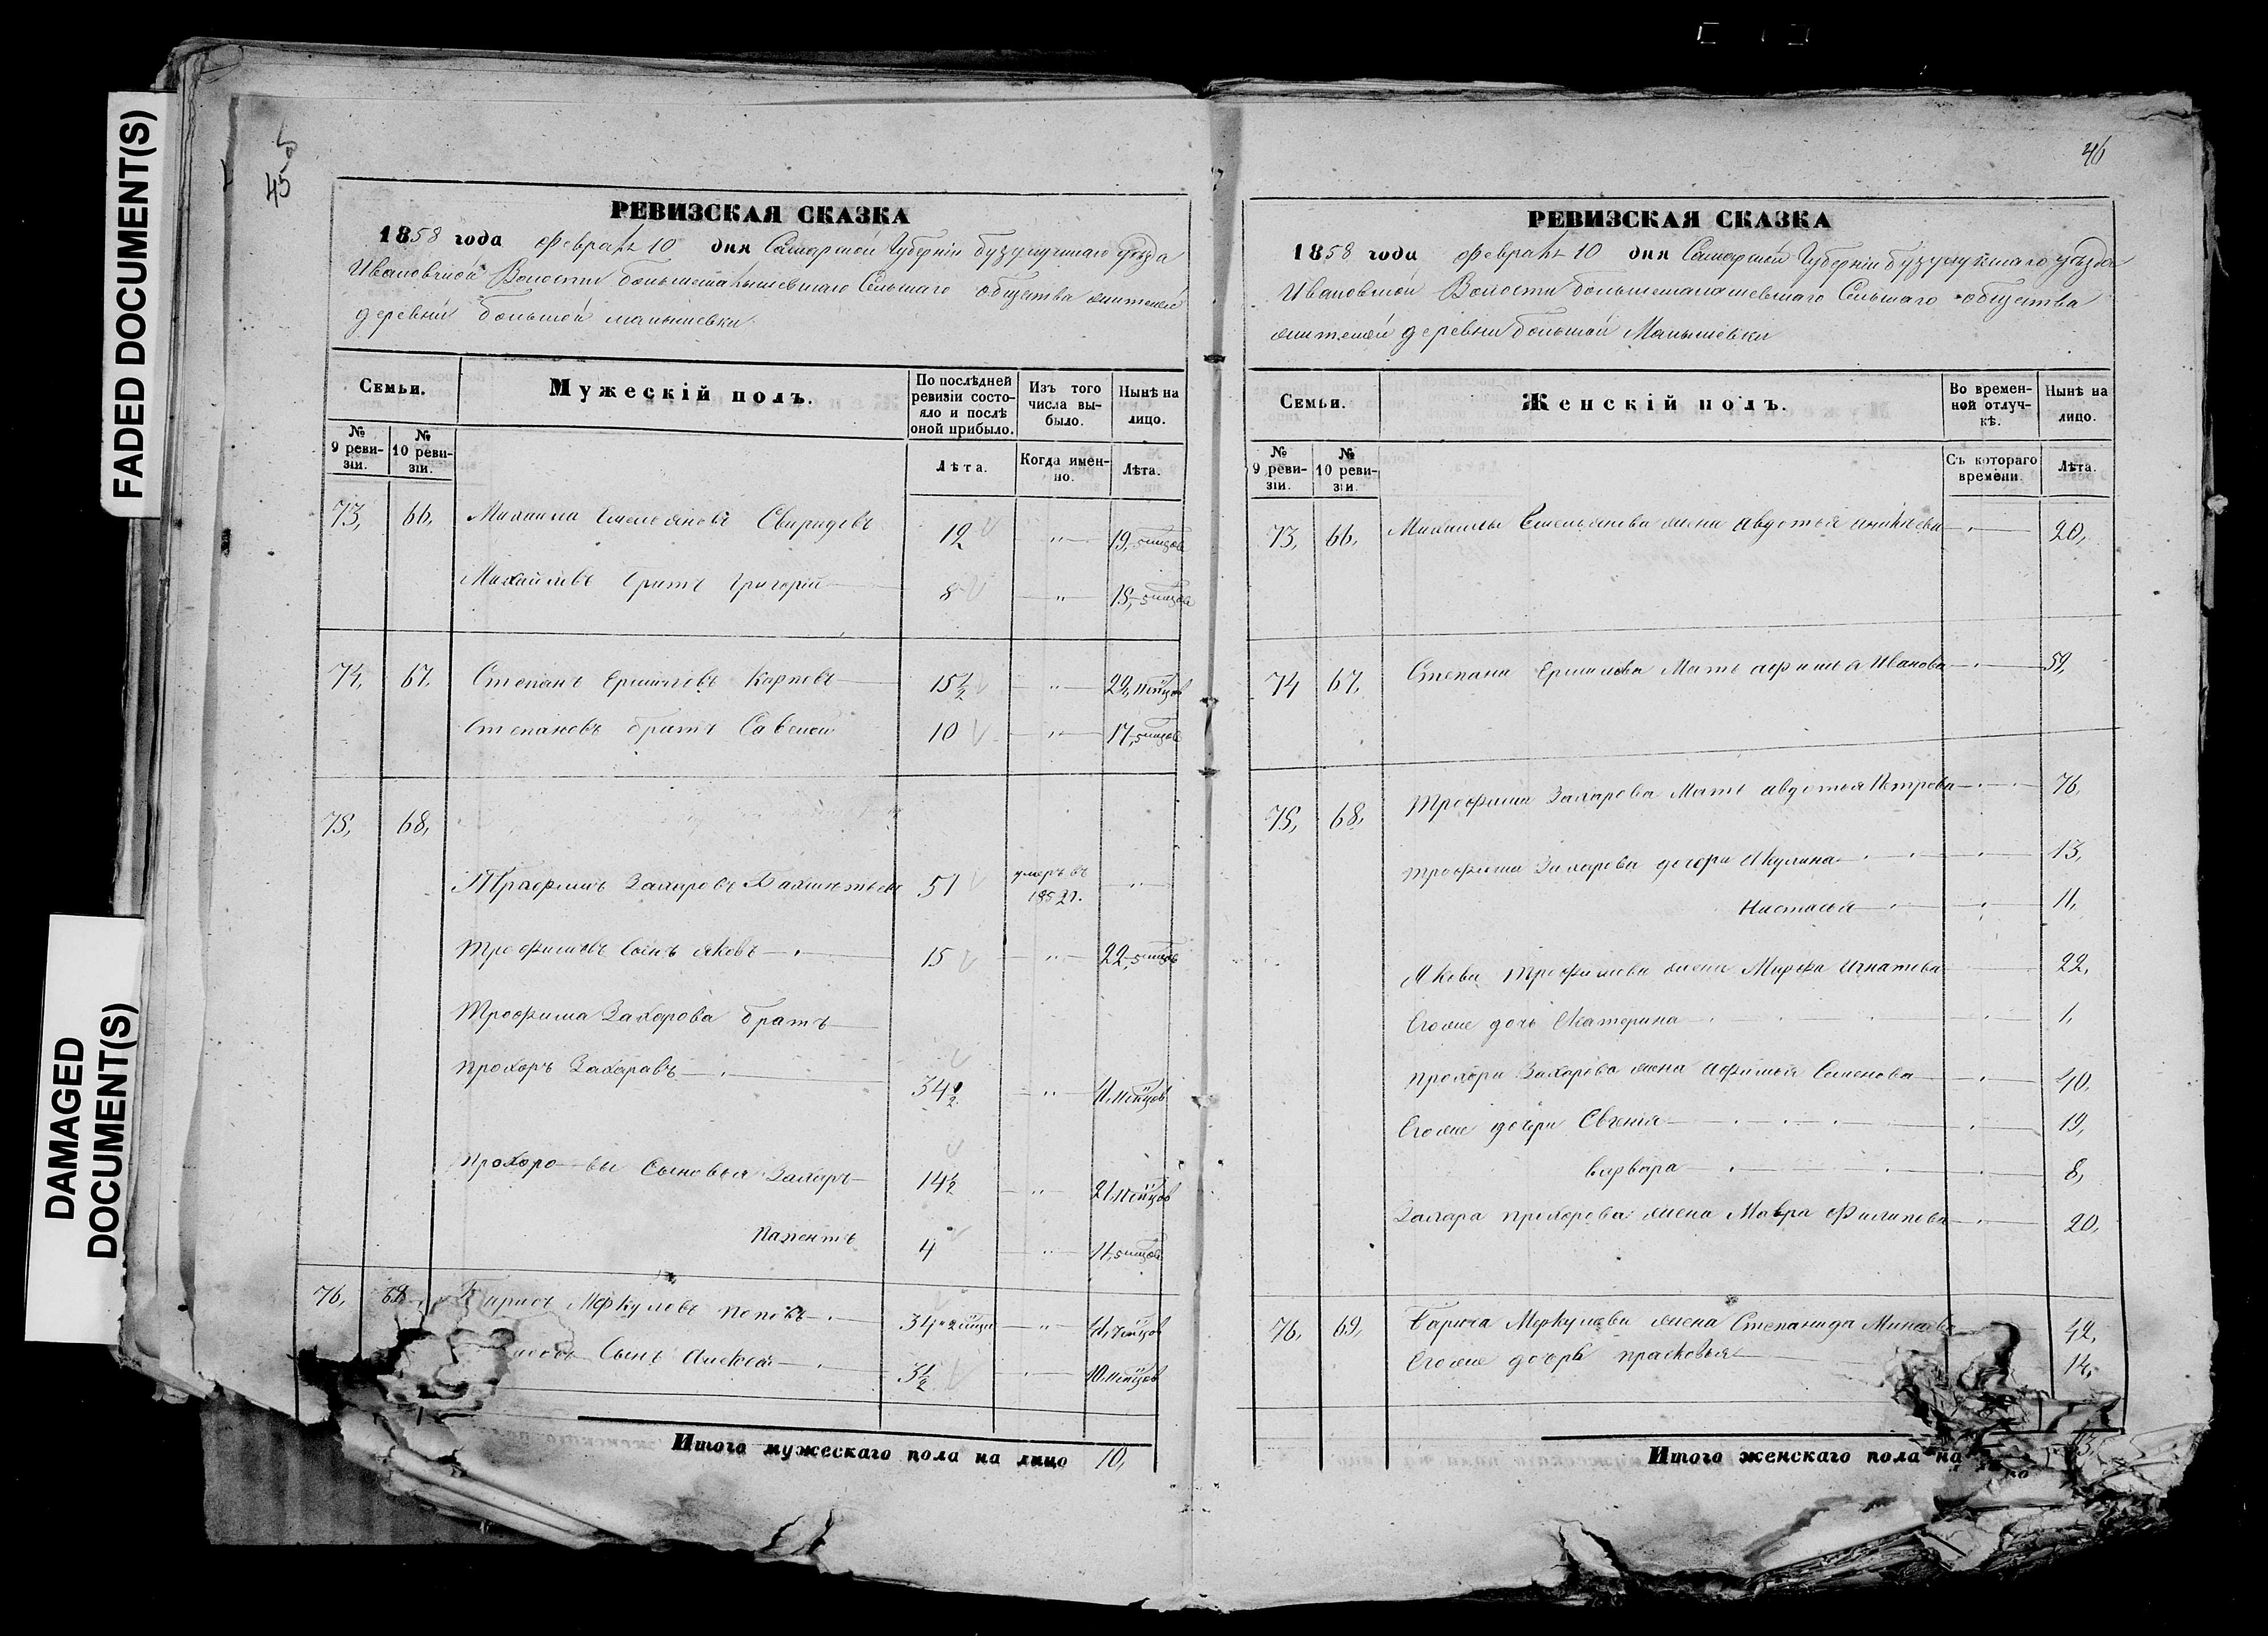 FADED DOCUMENT(S)
DAMAGED
DOCUMENT(S)
45
РЕВИЗСКАЯ СКАЗКА
1858 года февраля 10 дня Самарской Губернии бузулукскаго уезда
Ивановской Волости большемалышевскаго Сельскаго общества жителей
деревни большой малышевки
Семьи.
Мужескій полъ.
По послѣдней ревизіи состояло и послѣ оной прибыло.
Изъ того числа выбыло.
Нынѣ на лицо.
№ 9 ревизіи.
№ 10 ревизіи.
Лѣта.
Когда именно.
Лѣта.
73, 66, Михаила Емельяновъ Свиридовъ 12 " 19, 5 мцов
Михайловъ братъ Григорий 8 " 15, 5 мцов
74, 67, Степанъ Ермиловъ Карповъ 15½ " 22, 11 мцов
Степановъ братъ Савелий 10 " 17, 5 мцов
75, 68,
Трофимъ Захаровъ 51 умеръ въ 1852 г. "
Трофимовъ Сынъ Яковъ 15 " 22, 5 мцов
Трофима Захарова братъ
Прохоръ Захаровъ 34½ " 41, 11 мцов
Прохоровы Сыновья Захаръ 14½ " 21, 11 мцов
4 " 11, 5 мцов
76, Барисъ Меркуловъ Поповъ 34, 2 мцы " 41, 7 мцов
Сынъ Алексей 3½ " 10, 11 мцов
Итого мужескаго пола на лицо 10,
46
РЕВИЗСКАЯ СКАЗКА
1858 года февраля 10 дня Самарской Губернии бузулукскаго уезда
Ивановской Волости большемалышевскаго Сельскаго общества
жителей деревни большой Малышевки
Семьи.
Женскій полъ.
Во временной отлучкѣ.
Нынѣ на лицо.
№ 9 ревизіи.
№ 10 ревизіи.
Съ котораго времени.
Лѣта.
73, 66, Михаилы Емельянова жена авдотья 20,
74 67, Степана Ермилова Мать Иванова 59,
75, 68, Трофима Захарова Мать авдотья Петрова 76,
Трофима Захарова дочери Акулина 13,
Настасья 11,
Якова Трофимова жена Марфа Игнатева 22,
Егоже дочь Екатерина 1,
Прохора Захарова жена Афимья Семенова 40,
Егоже дочери Евгения 19,
Варвара 8,
Захара Прохорова жена Мавра Филипова 20,
76, 69, Бариса Меркулова жена Степанида Минаева 42,
Егоже дочрь прасковья 14,
Итого женскаго пола на лицо 13,